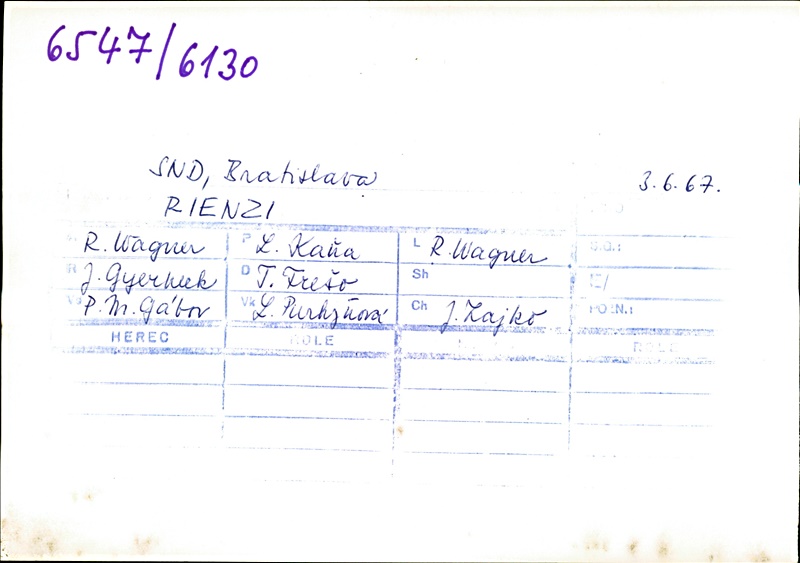 6547/6130
SND, Bratislava 3.6.67.
RIENZI
R. Wagner P L. Kaňa L R. Wagner S.G.:
R J. Gyermek D T. Frešo Sh
P. M. Gábor Vk L. Purkyňová Ch J. Zajko PO.N.:
HEREC ROLE